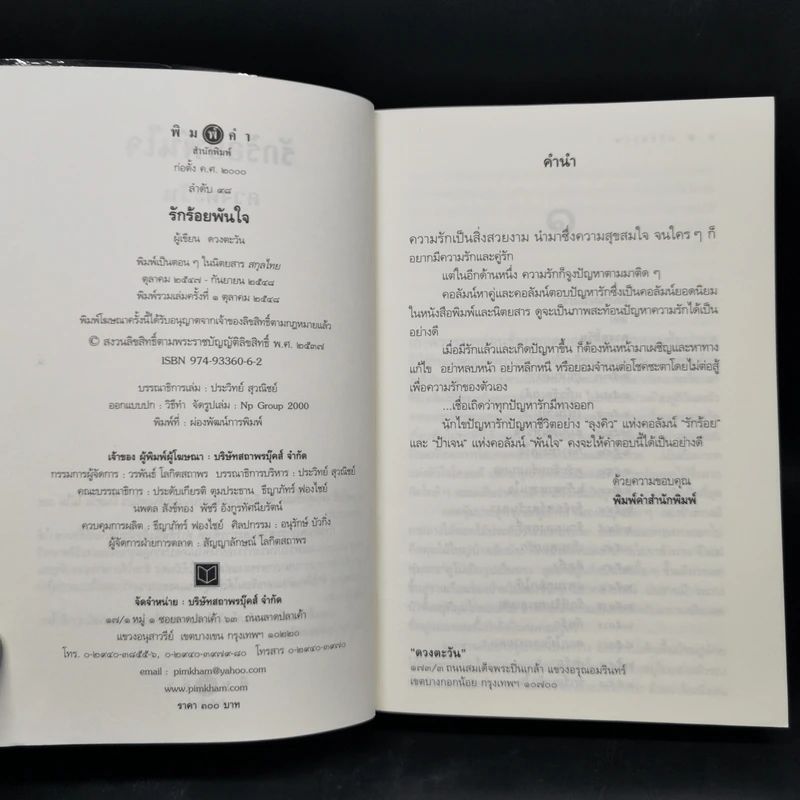 พิม พ์ คำ
สำนักพิมพ์
ก่อตั้ง ค.ศ. ๒๐๐๐
ลำดับ ๙๘
รักร้อยพันใจ
ผู้เขียน ดวงตะวัน
พิมพ์เป็นตอน ๆ ในนิตยสาร สกุลไทย
ตุลาคม ๒๕๔๗ - กันยายน ๒๕๔๘
พิมพ์รวมเล่มครั้งที่ ๑ ตุลาคม ๒๕๔๘
พิมพ์โฆษณาครั้งนี้ได้รับอนุญาตจากเจ้าของลิขสิทธิ์ตามกฎหมายแล้ว
© สงวนลิขสิทธิ์ตามพระราชบัญญัติลิขสิทธิ์ พ.ศ. ๒๕๓๗
ISBN 974-93360-6-2
บรรณาธิการเล่ม : ประวิทย์ สุวณิชย์
ออกแบบปก : วิธีทำ จัดรูปเล่ม : Np Group 2000
พิมพ์ที่ : ผ่องพัฒนการพิมพ์
เจ้าของ ผู้พิมพ์ผู้โฆษณา : บริษัทสถาพรบุ๊คส์ จำกัด
กรรมการผู้จัดการ : วรพันธ์ โลกิตสถาพร บรรณาธิการบริหาร : ประวิทย์ สุวณิชย์
คณะบรรณาธิการ : ประดับเกียรติ ตุมประธาน ธีญาภัทร์ ฟองไชย์
นพดล สังข์ทอง พัชรี อังกูรทัศนียรัตน์
ควบคุมการผลิต : ธีญาภัทร์ ฟองไชย์ ศิลปกรรม : อนุรักษ์ บัวกิ่ง
ผู้จัดการฝ่ายการตลาด : สัญญาลักษณ์ โลกิตสถาพร
จัดจำหน่าย : บริษัทสถาพรบุ๊คส์ จำกัด
๑๗/๑ หมู่ ๑ ซอยลาดปลาเค้า ๖๓ ถนนลาดปลาเค้า
แขวงอนุสาวรีย์ เขตบางเขน กรุงเทพฯ ๑๐๒๒๐
โทร. ๐-๒๙๔๐-๓๘๕๕-๖, ๐-๒๙๔๐-๓๙๗๙-๘๐ โทรสาร ๐-๒๙๔๐-๓๙๗๐
email : pimkham@yahoo.com
www.pimkham.com
ราคา ๓๐๐ บาท
คำนำ
ความรักเป็นสิ่งสวยงาม นำมาซึ่งความสุขสมใจ จนใคร ๆ ก็
อยากมีความรักและคู่รัก
แต่ในอีกด้านหนึ่ง ความรักก็จูงปัญหาตามมาติด ๆ
คอลัมน์หาคู่และคอลัมน์ตอบปัญหารักซึ่งเป็นคอลัมน์ยอดนิยม
ในหนังสือพิมพ์และนิตยสาร ดูจะเป็นภาพสะท้อนปัญหาความรักได้เป็น
อย่างดี
เมื่อมีรักแล้วและเกิดปัญหาขึ้น ก็ต้องหันหน้ามาเผชิญและหาทาง
แก้ไข อย่าหลบหน้า อย่าหลีกหนี หรือยอมจำนนต่อโชคชะตาโดยไม่ต่อสู้
เพื่อความรักของตัวเอง
...เชื่อเถิดว่าทุกปัญหารักมีทางออก
นักไขปัญหารักปัญหาชีวิตอย่าง "ลุงคิว" แห่งคอลัมน์ "รักร้อย"
และ "ป้าเจน" แห่งคอลัมน์ "พันใจ" คงจะให้คำตอบนี้ได้เป็นอย่างดี
ด้วยความขอบคุณ
พิมพ์คำสำนักพิมพ์
"ดวงตะวัน"
๑๗๓/๓ ถนนสมเด็จพระปิ่นเกล้า แขวงอรุณอมรินทร์
เขตบางกอกน้อย กรุงเทพฯ ๑๐๗๐๐